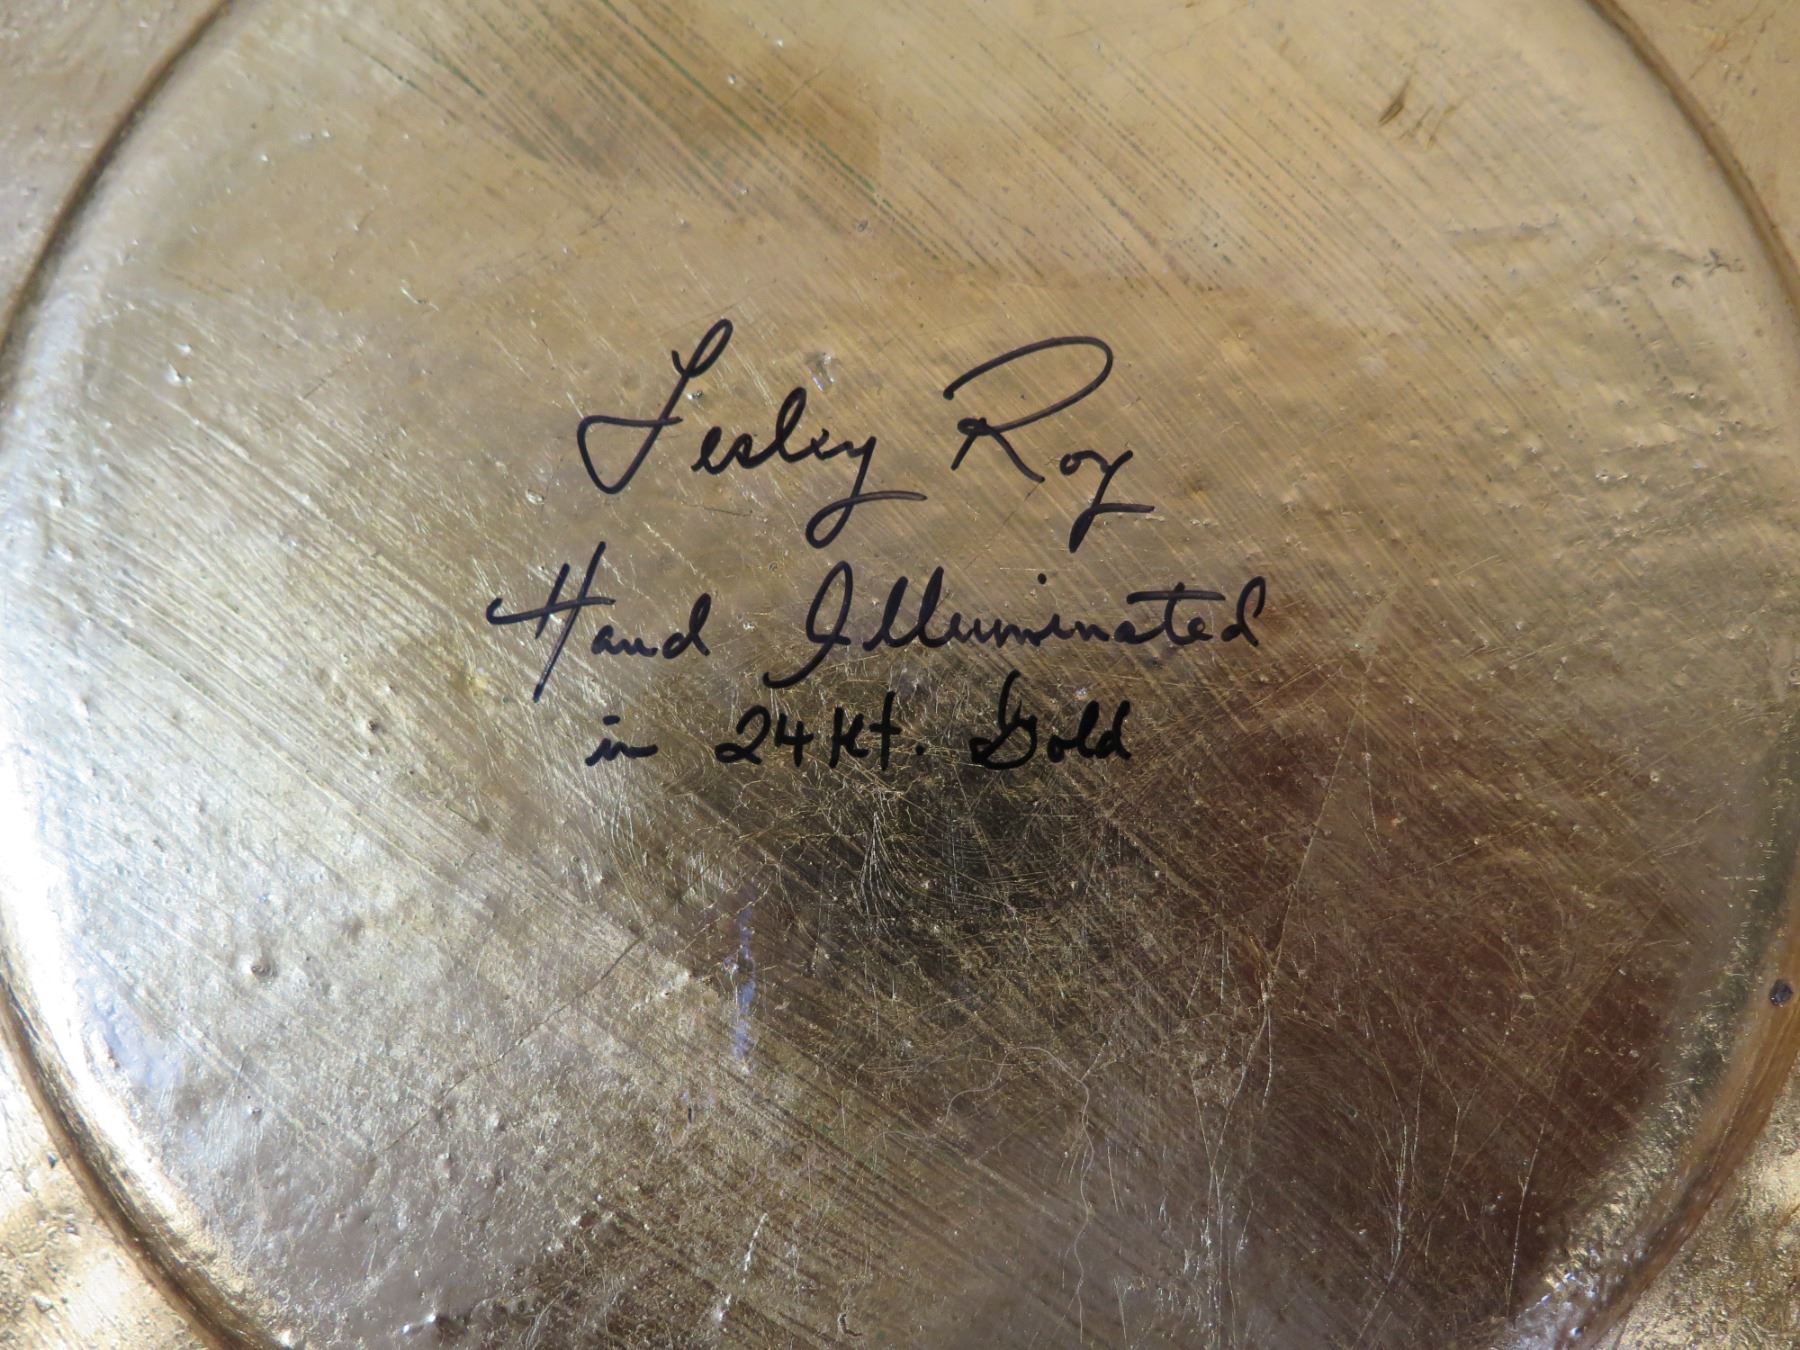 Lesley Roy
Hand Illuminated
in 24 Kt. Gold